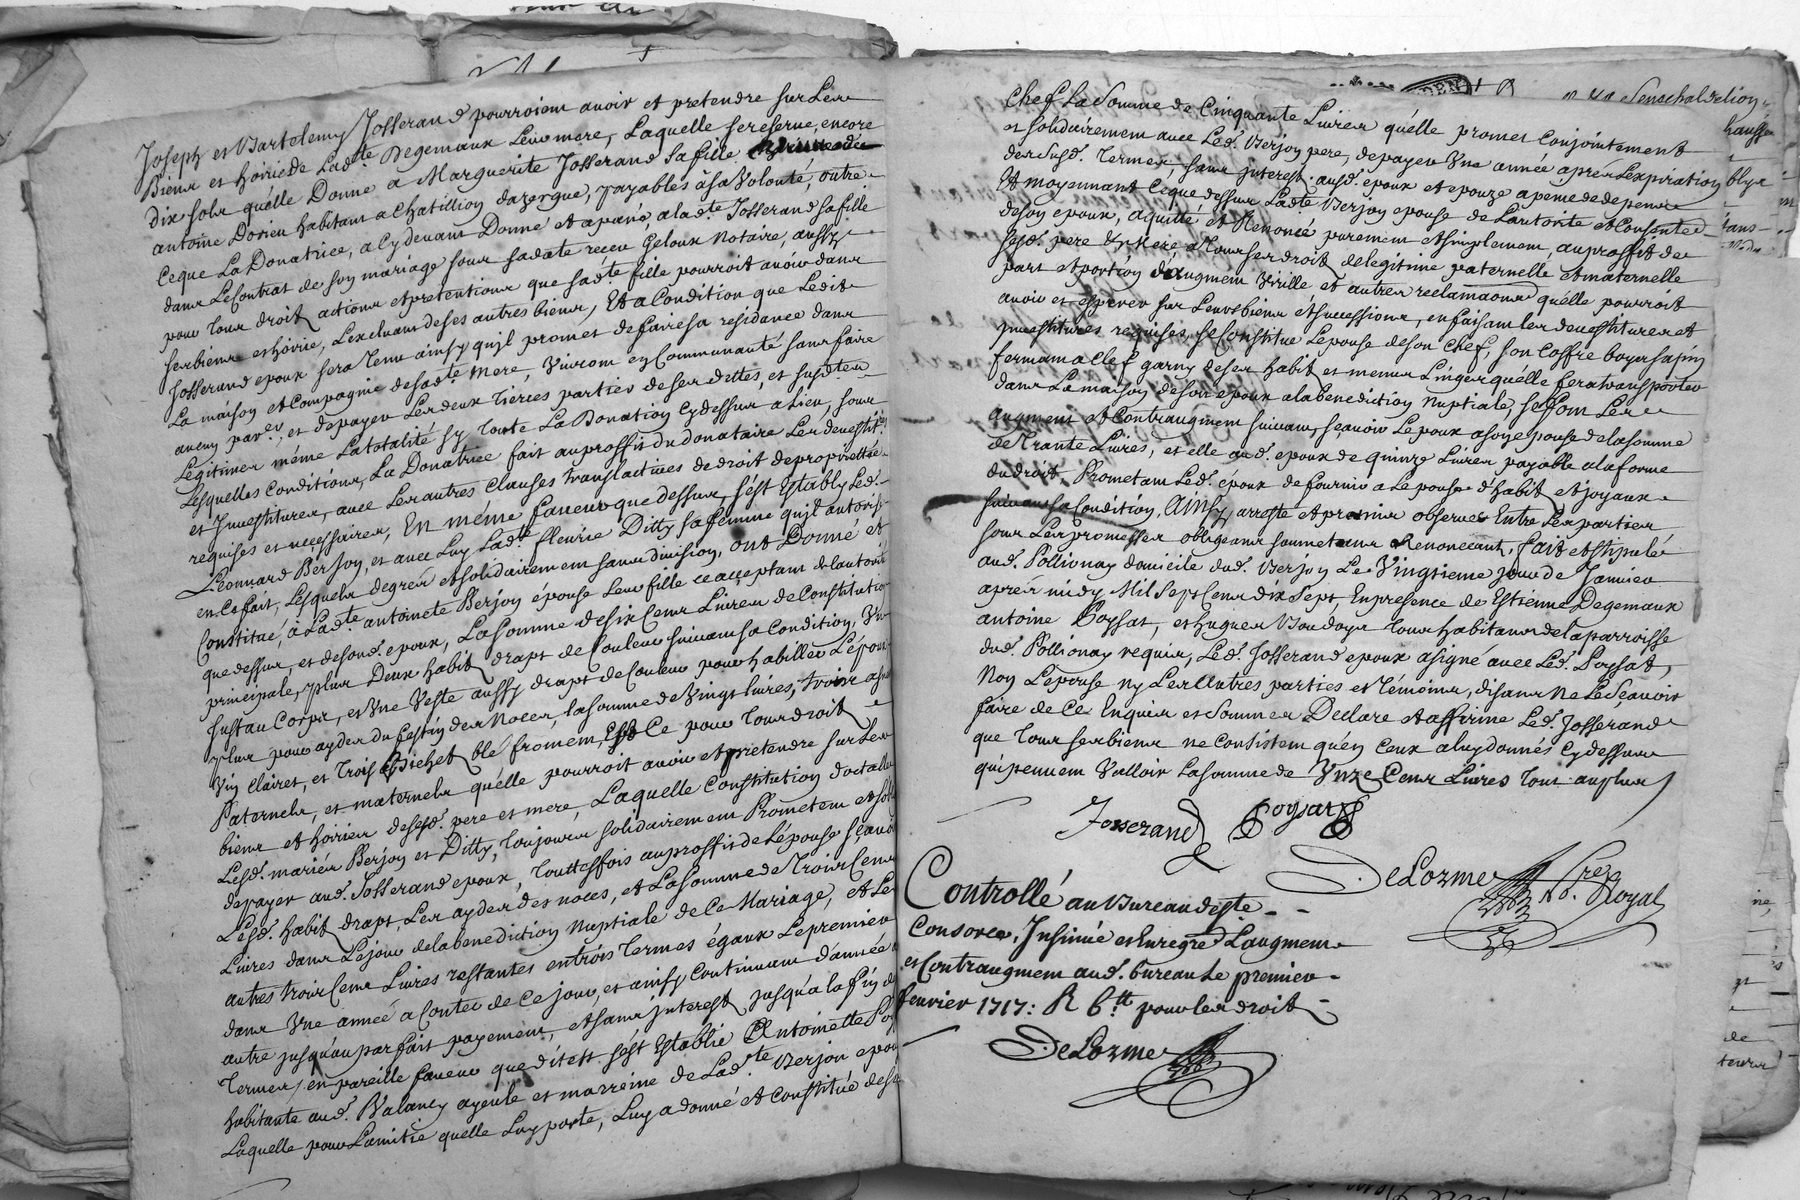 Joseph et Bartelemy Josserand pourroient auoir et pretendre sur Les
Biens et hoiriede Lad.te Degemaux Leur mere, Laquelle sereserue, encore
dix sols quélle Donne a Marguerite Josserand sa fille
antoine Dorieu habitant a Chatillion dazergue, payables àsa Volonté, outre
Ceque La Donatrice, a Cydeuant Donné et a paié, a la d.te Josserand sa fille
dans Le Contrat de son mariage sous sadate receu Geloux Notaire, aussy
pour Tous droit actions et pretentions que sad.te fille pourroit auoir dans
ses biens et hoirie, L'excluant deses autres biens, Et a Condition que Ledit
Josserand epoux sera Tenu ainsy quil promet de faire sa residance dans
La maison et Compagnie desad.te Mere, Viuront en Communauté sans faire
aucun par.er, et depayer Les deux Tierces parties deses dettes, et susd.tes
Legitimes même La totalité sy Toute La Donation Cydessus a Lieu, sous
Lesquelles Conditions, La Donatrice fait au proffit du donataire Les deuestit.es
et Inuestitures, auec Les autres Clauses translactiues de droit de proprietté
requises et necessaires, En même faueur que dessus, s'ést Estably Led.
Leonnard Berjon, et auec Luy Lad.te fleurie Ditty sa femme quil autorise
en Ce fait, Lesquels degrés et solidairement sans diuision, ont Donné et
Constitué, à Lad.te antoinete Berjon épouse Leur fille ce acceptant de lautorité
que dessus, et desond. epoux, La somme de six Cens Liures de Constitution
principale, plus Deux habit drapt de Couleur suiuant sa Condition, Vn
Justau Corps, et Vne Veste aussy drapt de Couleur pour habiller L'époux
plus pour ayder du festin des Noces, la somme de Vingt liures, trois
Vin Clairet, et Trois Bichet blé froment, Et Ce pour Tous droit
Paternels, et maternels quélle pourroit auoir et pretendre sur Les
biens et hoiries desesd. pere et mere, Laquelle Constitution
Lesd. mariés Berjon et Ditty, Toujours solidairement Promettent
depayer aud. Josserand epoux, Touttesfois au proffit de Lépouse
Lesd. habit drapt, Les ayder des noces, et La somme de Trois Cens
Liures dans Lejour de la benediction Nuptiale de Ce Mariage, et Les
autres trois Cens Liures restantes en trois Termes égaux Le premier
dans Vne année a Conter de Ce jour, et ainsy Continuant d'année
autre jusqu'au parfait payement, et sans interest jusqu'a la fin
Termes, en pareille faueur que dit est s'ést Establie Antoinette
habitante aud. Balancy ayeule et marreine de Lad.te Berjon
Laquelle pour Lamitié quelle Luy porte, Luy a donné et Constitué de
Chef La Somme de Cinquante Liures quélle promet Conjointement
et solidairement auec Led. Berjon pere, depayer Vne année aprés Lexpiration
des susd. Termes, sans interest ausd. epoux et epouze apeine de depens
Et moyennant Ceque dessus Lad.te Berjon epouse de Lautorité et Consente
de son epoux, aquitte et Renonce purement et simplement, au proffit de
sesd. pere et Mere a Tous ses droit de legitime paternelle et maternelle
part et portion d'augment Virille et autres reclamaons quélle pourroit
auoir et esperer sur Leurs biens et successions, en faisant les deuestitures et
Inuestitures requises. se Constitue Lépouse de son Chef, son Coffre boys sapin
fermant a Clef garny de ses habit et menus Linges quélle fera transporter
dans La maison de son epoux a la benediction Nuptiale, se font Les
augment et Contraugment suiuant, sçauoir Lepoux asonepouse de la somme
de Trante Liures, et elle aud. epoux de quinze Liures payable a la forme
du droit, Prometant Led. époux de fournir a Lepouse d'habit et joyaux
suiuant sa Condition, Ainsy arresté et promis obseruer Entre Les parties
sous Les promesses obligeans soumetans Renoncans, fait et stipulé
aud. Pollionay domicile dud. Berjon Le Vingtieme jour de Januier
aprés midy Mil Sept Cens dix Sept, En presence de Estienne Degemaux
antoine Poysat, et hugues Boudoys Tous habitans de la parroisse
dud. Pollionay requis, Led. Josserand epoux a signé auec Led. Poysat,
Non Lépouse ny Les Autres parties et Témoins, disans Ne Le Sçauoir
faire de Ce Enquis et Sommes Declare et affirme Led. Josserand
que Tous ses biens ne Consistent qu'en Ceux a luy donnés Cydessus
qui peuuent Valloir La somme de Vnze Cens Liures Tout au plus
Josserand Poysat
DeLorme No.re Royal
Controllé au Bureau deste
Consorce, Insinué et Enregré L'augment
et Contraugment aud. bureau Le premier
feurier 1717: R 6.tt pour les droit
DeLorme